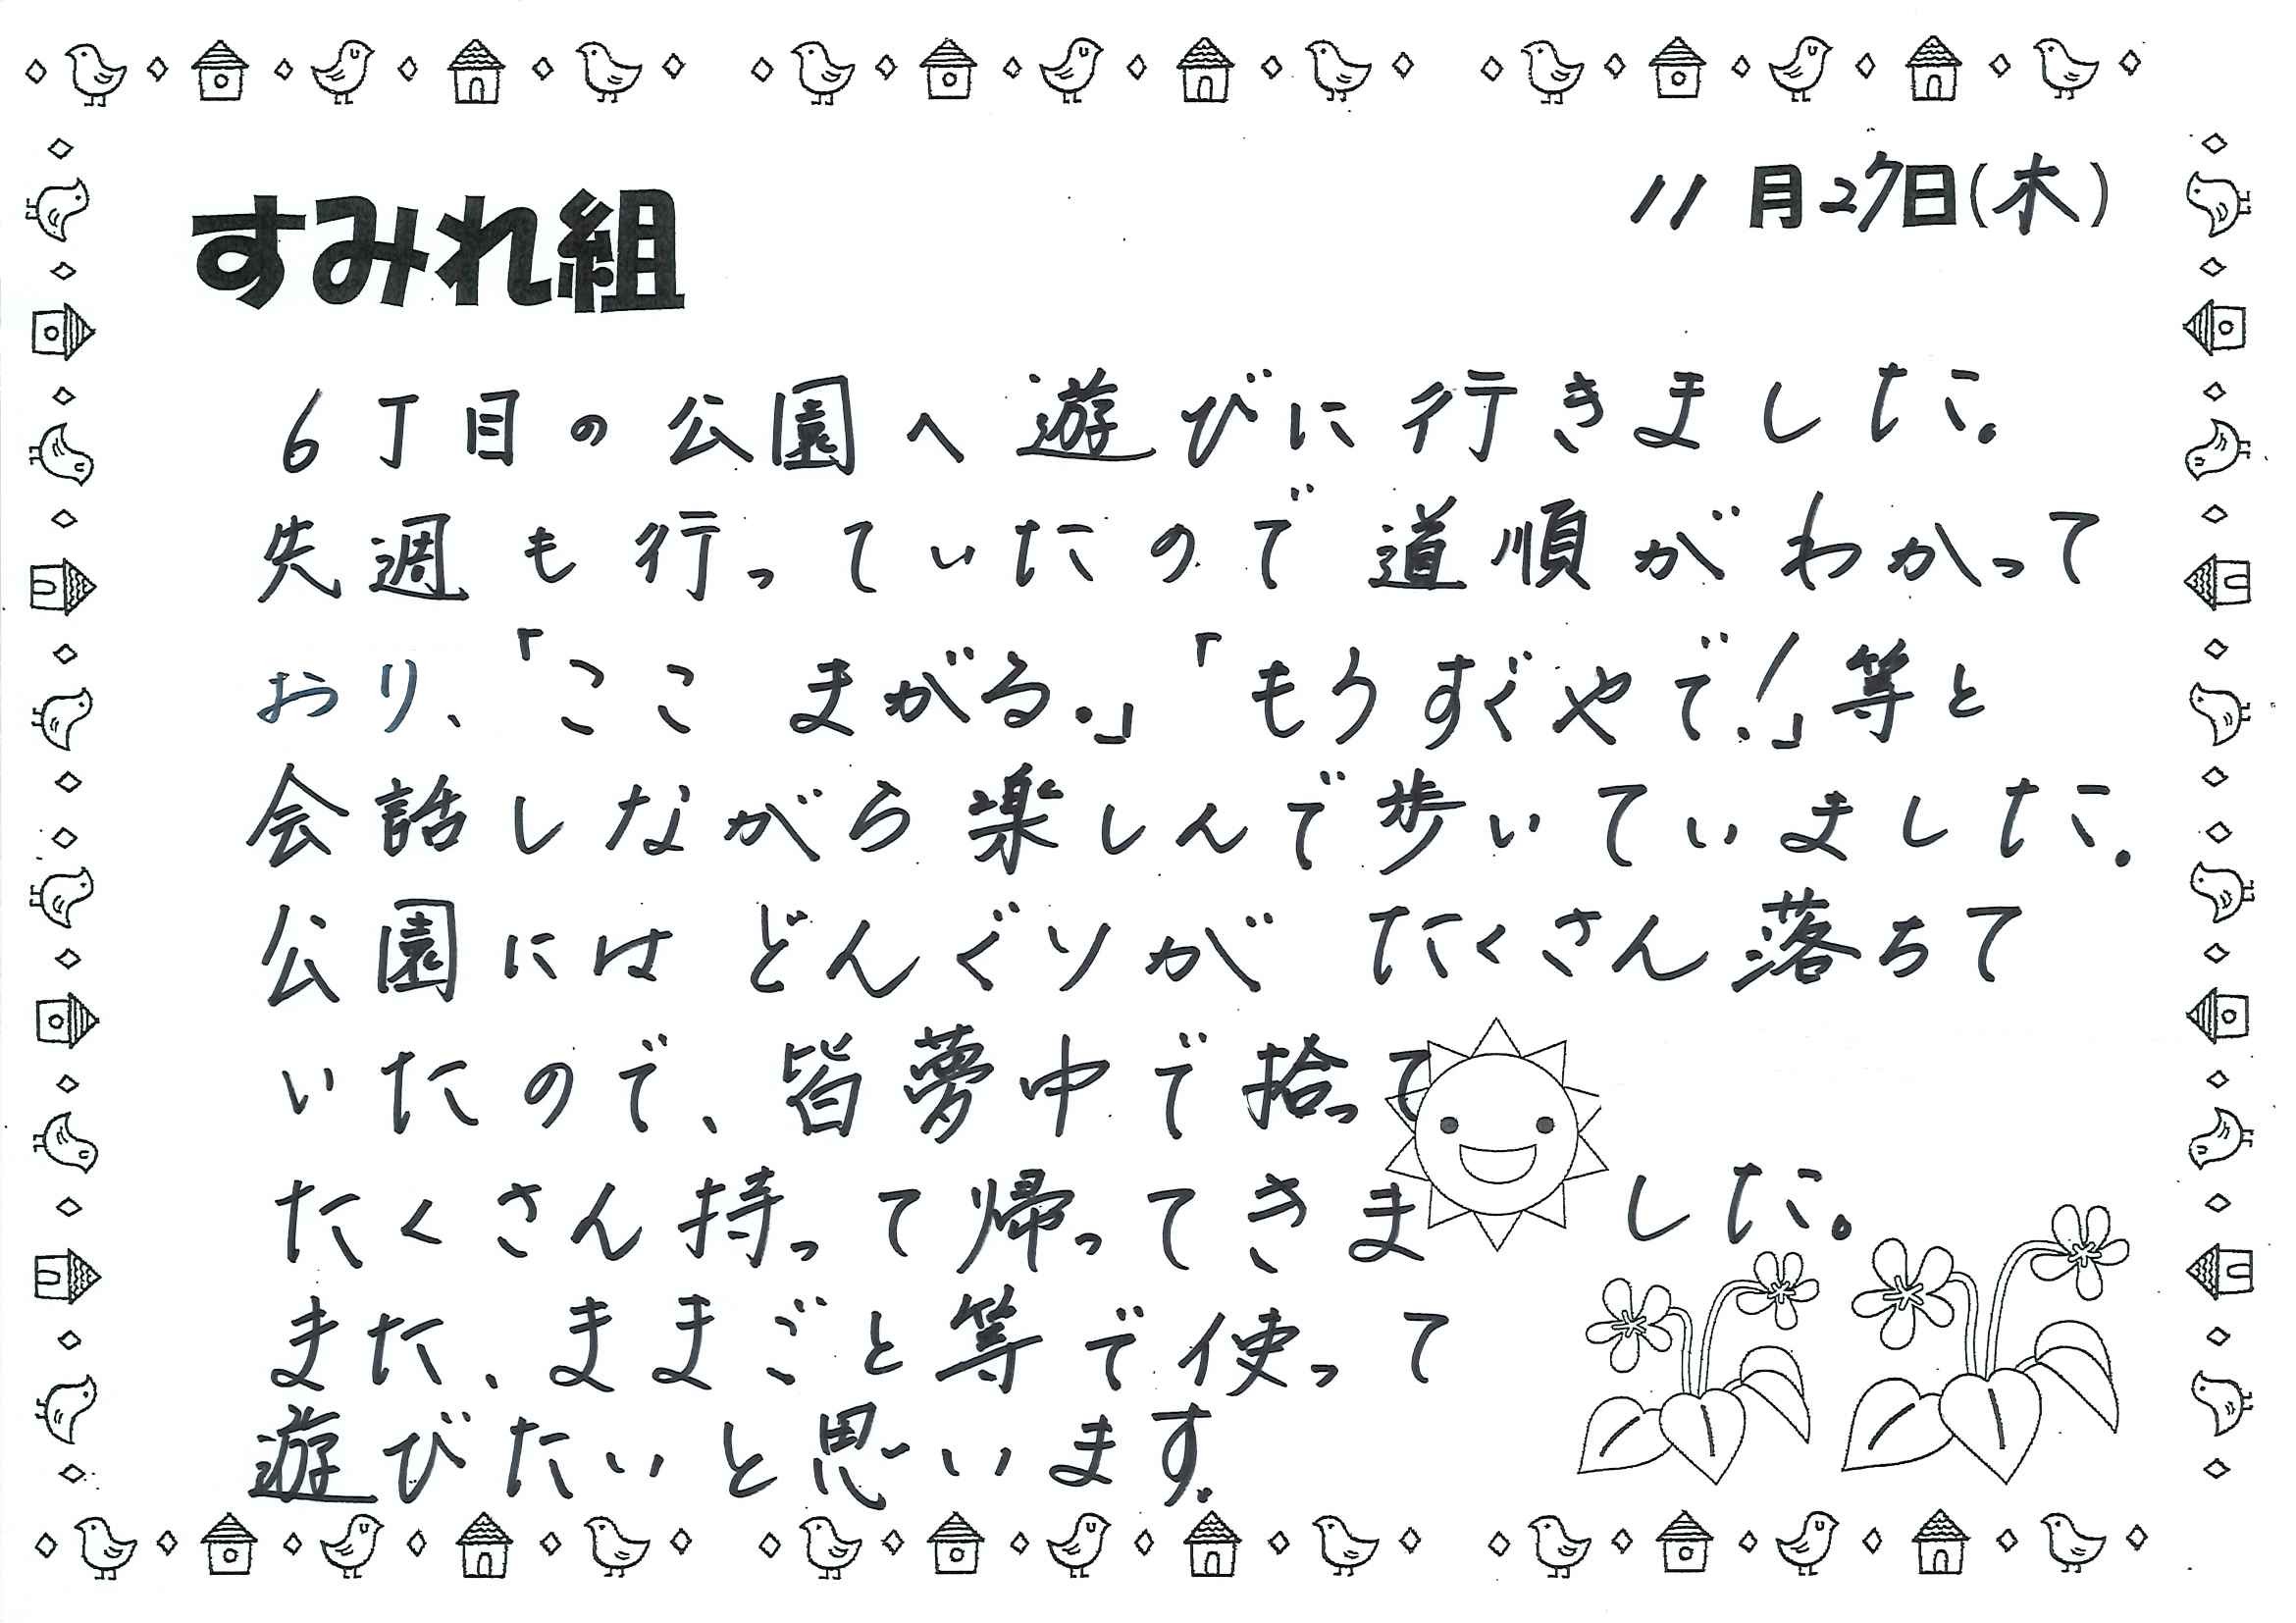 すみれ組
11月27日(木)
6丁目の公園へ遊びに行きました。
先週も行っていたので道順がわかって
おり、「ここ まがる。」「もうすぐやで!」等と
会話しながら楽しんで歩いていました。
公園には どんぐりが たくさん落ちて
いたので、皆夢中で拾って
たくさん持って帰ってきました。
また、ままごと等で使って
遊びたいと思います。